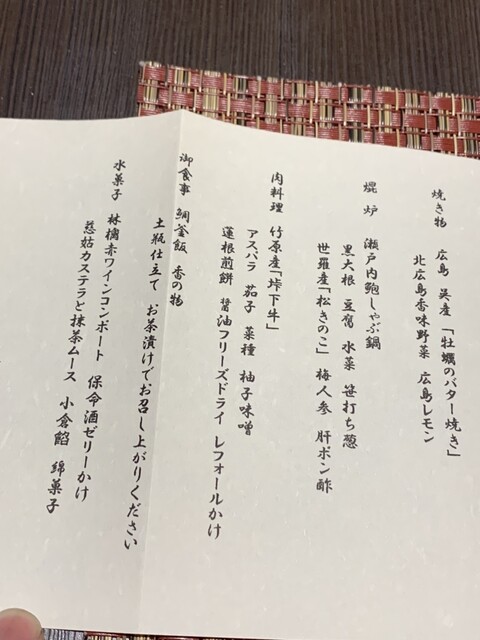 焼き物　広島　呉産「牡蠣のバター焼き」
北広島香味野菜　広島レモン
焜炉　瀬戸内鮑しゃぶ鍋
黒大根　豆腐　水菜　笹打ち葱
世羅産「松きのこ」　梅人参　肝ポン酢
肉料理　竹原産「峠下牛」
アスパラ　茄子　菜種　柚子味噌
蓮根煎餅　醤油フリーズドライ　レフォールかけ
御食事　鯛釜飯　香の物
土瓶仕立て　お茶漬けでお召し上がりください
水菓子　林檎赤ワインコンポート　保命酒ゼリーかけ
慈姑カステラと抹茶ムース　小倉餡　錦菓子